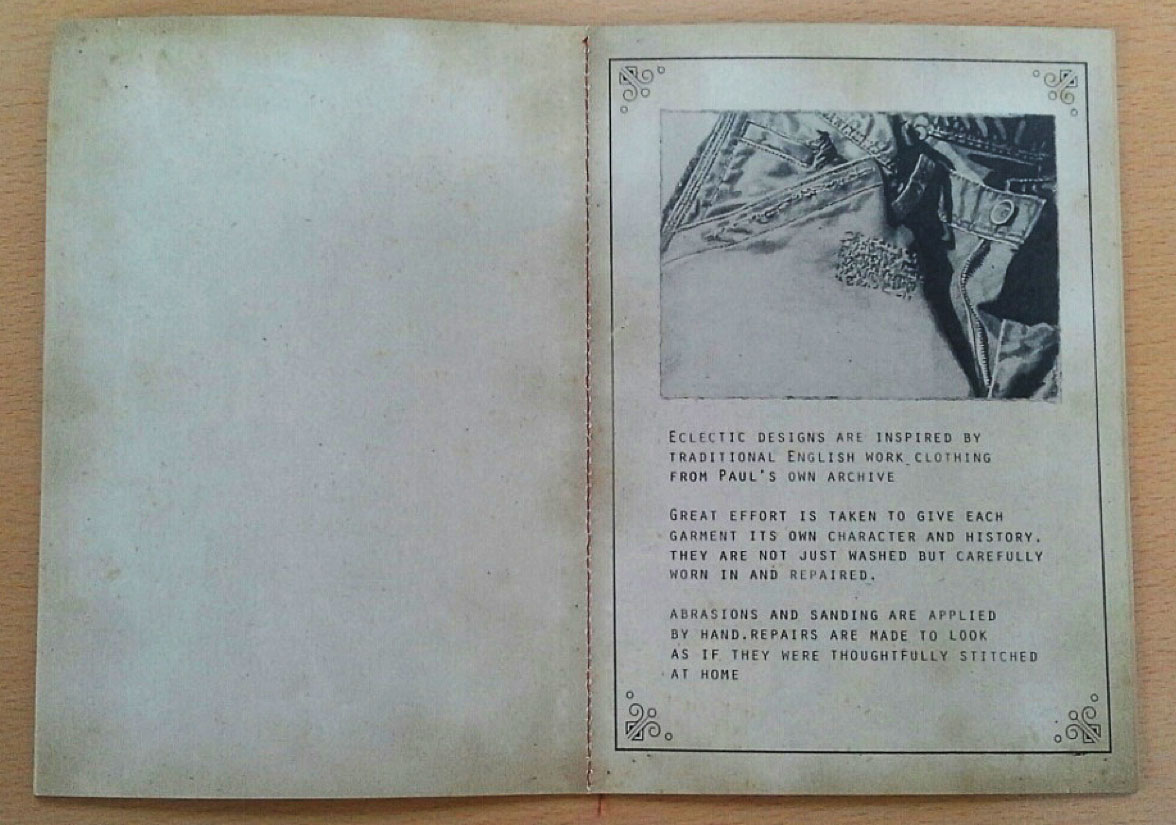 Eclectic designs are inspired by
traditional English work clothing
from Paul's own archive
Great effort is taken to give each
garment its own character and history.
they are not just washed but carefully
worn in and repaired.
abrasions and sanding are applied
by hand.repairs are made to look
as if they were thoughtfully stitched
at home